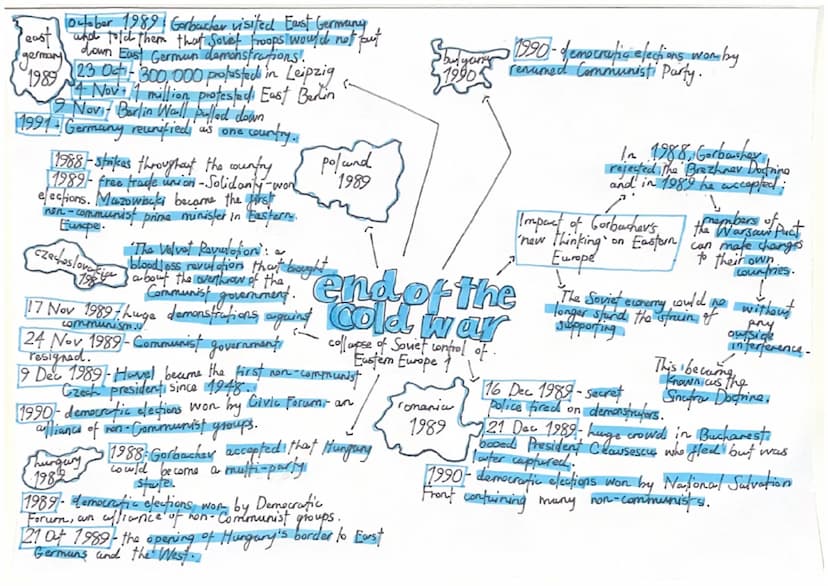 east
germany
1989
October 1989: Gorbachev visited East Germany
and told them that Soviet troops would not put
down East German demonstrations.
23 Oct - 300,000 protested in Leipzig
4 Nov - 1 million protested East Berlin
9 Nov - Berlin Wall pulled down
1991 - Germany reunified as one country.
1988 - strikes throughout the country
1989 - free trade union - Solidarity - won
elections. Mazowiecki became the first
non-communist prime minister in Eastern
Europe.
poland
1989
czechoslovakia
1989
'The Velvet Revolution': a
bloodless revolution that brought
about the overthrow of the
Communist government.
17 Nov 1989 - huge demonstrations against
communism.
24 Nov 1989 - Communist government
resigned.
9 Dec 1989 - Havel became the first non-communist
Czech president since 1948.
1990 - democratic elections won by Civic Forum - an
alliance of non-Communist groups.
hungary
1989
1988 - Gorbachev accepted that Hungary
could become a multi-party
state.
1989 - democratic elections won by Democratic
Forum, an alliance of non-Communist groups.
21 Oct 1989 - the opening of Hungary's border to East
Germans and the West.
end of the
cold war
collapse of Soviet control of
Eastern Europe
bulgaria
1990
1990 - democratic elections won by
renamed Communist Party.
Impact of Gorbachev's
'new thinking' on Eastern
Europe
In 1988, Gorbachev
rejected the Brezhnev Doctrine
and in 1989 he accepted:
members of
the Warsaw Pact
can make changes
to their own
countries.
without
any
outside
interference.
This became
known as the
Sinatra Doctrine.
The Soviet economy could no
longer stand the strain of
supporting
romania
1989
16 Dec 1989 - secret
police fired on demonstrators.
21 Dec 1989 - huge crowd in Bucharest
booed President Ceausescu who fled but was
later captured.
1990 - democratic elections won by National Salvation
Front containing many non-communists.